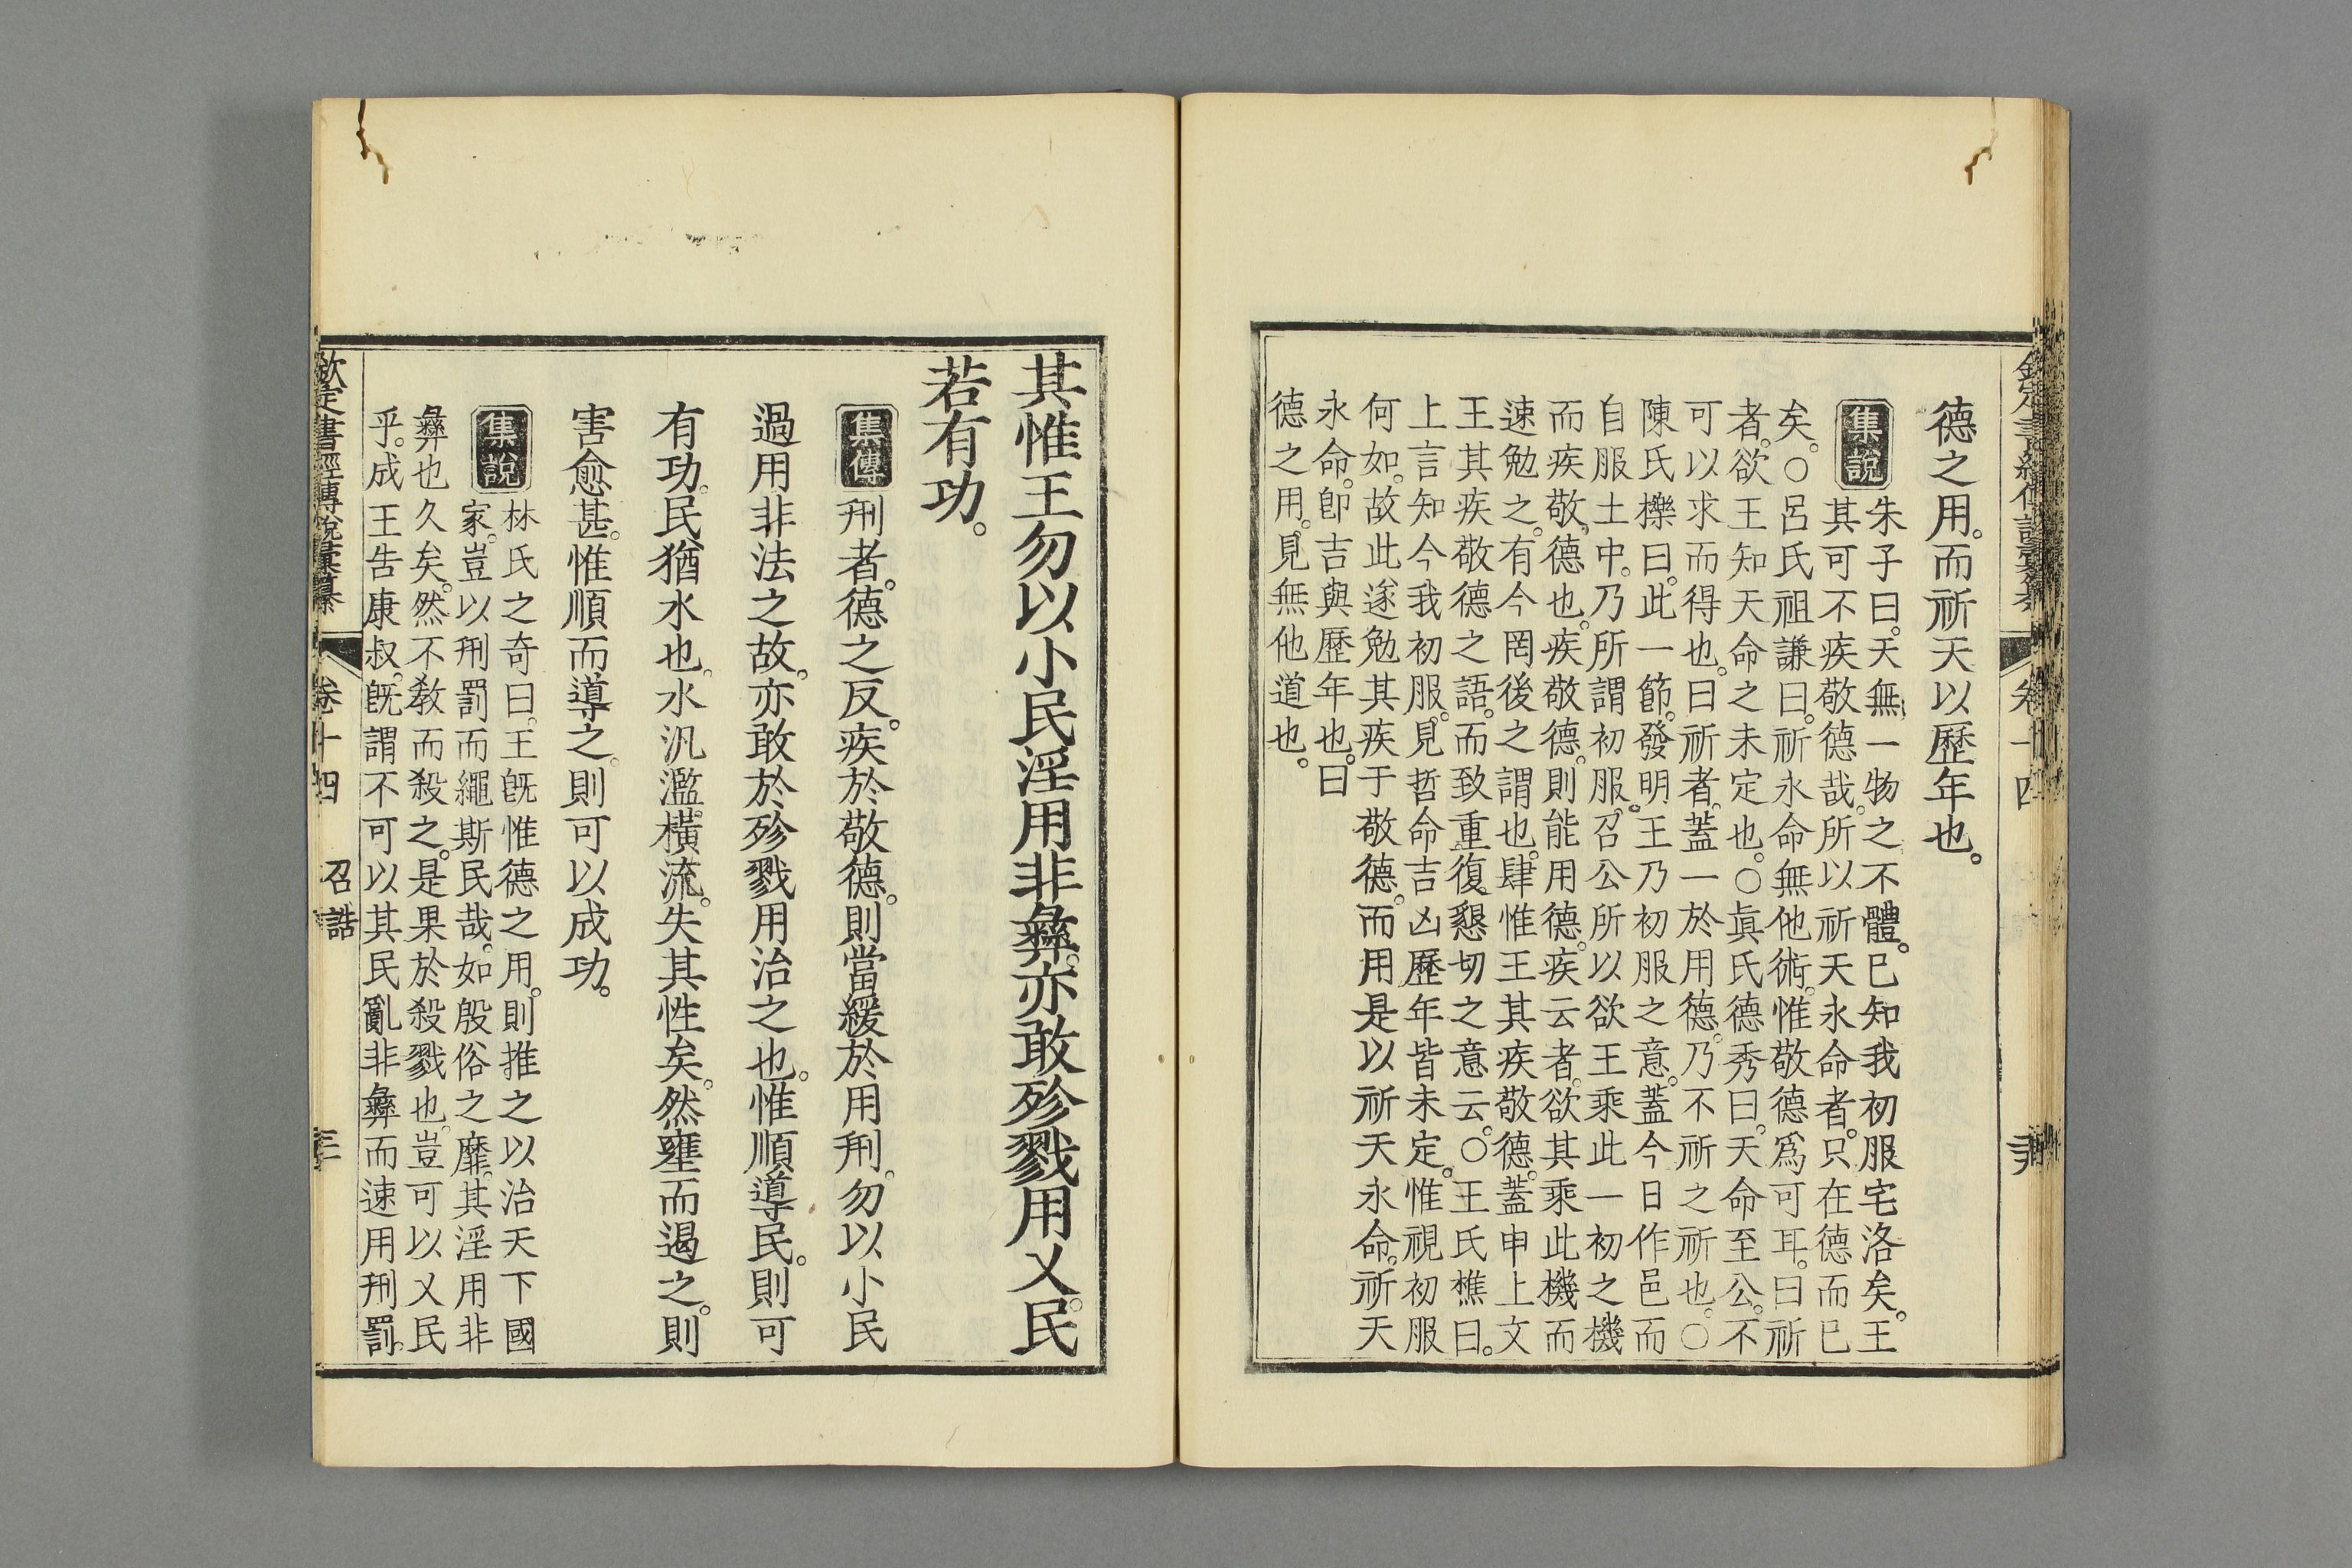 德之用。而祈天以歷年也。
集說
朱子曰。天無一物之不體。已知我初服宅洛矣。王
其可不疾敬德哉。所以祈天永命者。只在德而已
矣。○呂氏祖謙曰。祈永命無他術。惟敬德爲可耳。曰祈
者。欲王知天命之未定也。○眞氏德秀曰。天命至公。不
可以求而得也。曰祈者。蓋一於用德。乃不祈之祈也。○
陳氏櫟曰。此一節。發明王乃初服之意。蓋今日作邑而
自服土中。乃所謂初服。召公所以欲王乘此一初之機
而疾敬德也。疾敬德。則能用德。疾云者。欲其乘此機而
速勉之。有今罔後之謂也。肆惟王其疾敬德。蓋申上文
王其疾敬德之語。而致重復懇切之意云。○王氏樵曰。
上言知今我初服。見哲命吉凶歷年皆未定。惟視初服
何如。故此遂勉其疾于敬德。而用是以祈天永命。祈天
永命。卽吉與歷年也。曰
德之用。見無他道也。
其惟王勿以小民淫用非彝。亦敢殄戮用乂民。
若有功。
集傳
刑者。德之反。疾於敬德。則當緩於用刑。勿以小民
過用非法之故。亦敢於殄戮用治之也。惟順導民。則可
有功。民猶水也。水汎濫橫流。失其性矣。然壅而遏之。則
害愈甚。惟順而導之。則可以成功。
集說
林氏之奇曰。王旣惟德之用。則推之以治天下國
家。豈以刑罰而繩斯民哉。如殷俗之靡。其淫用非
彝也久矣。然不敎而殺之。是果於殺戮也。豈可以乂民
乎。成王告康叔。旣謂不可以其民亂非彝而速用刑罰。
欽定書經傳說彙纂 卷十四 召誥